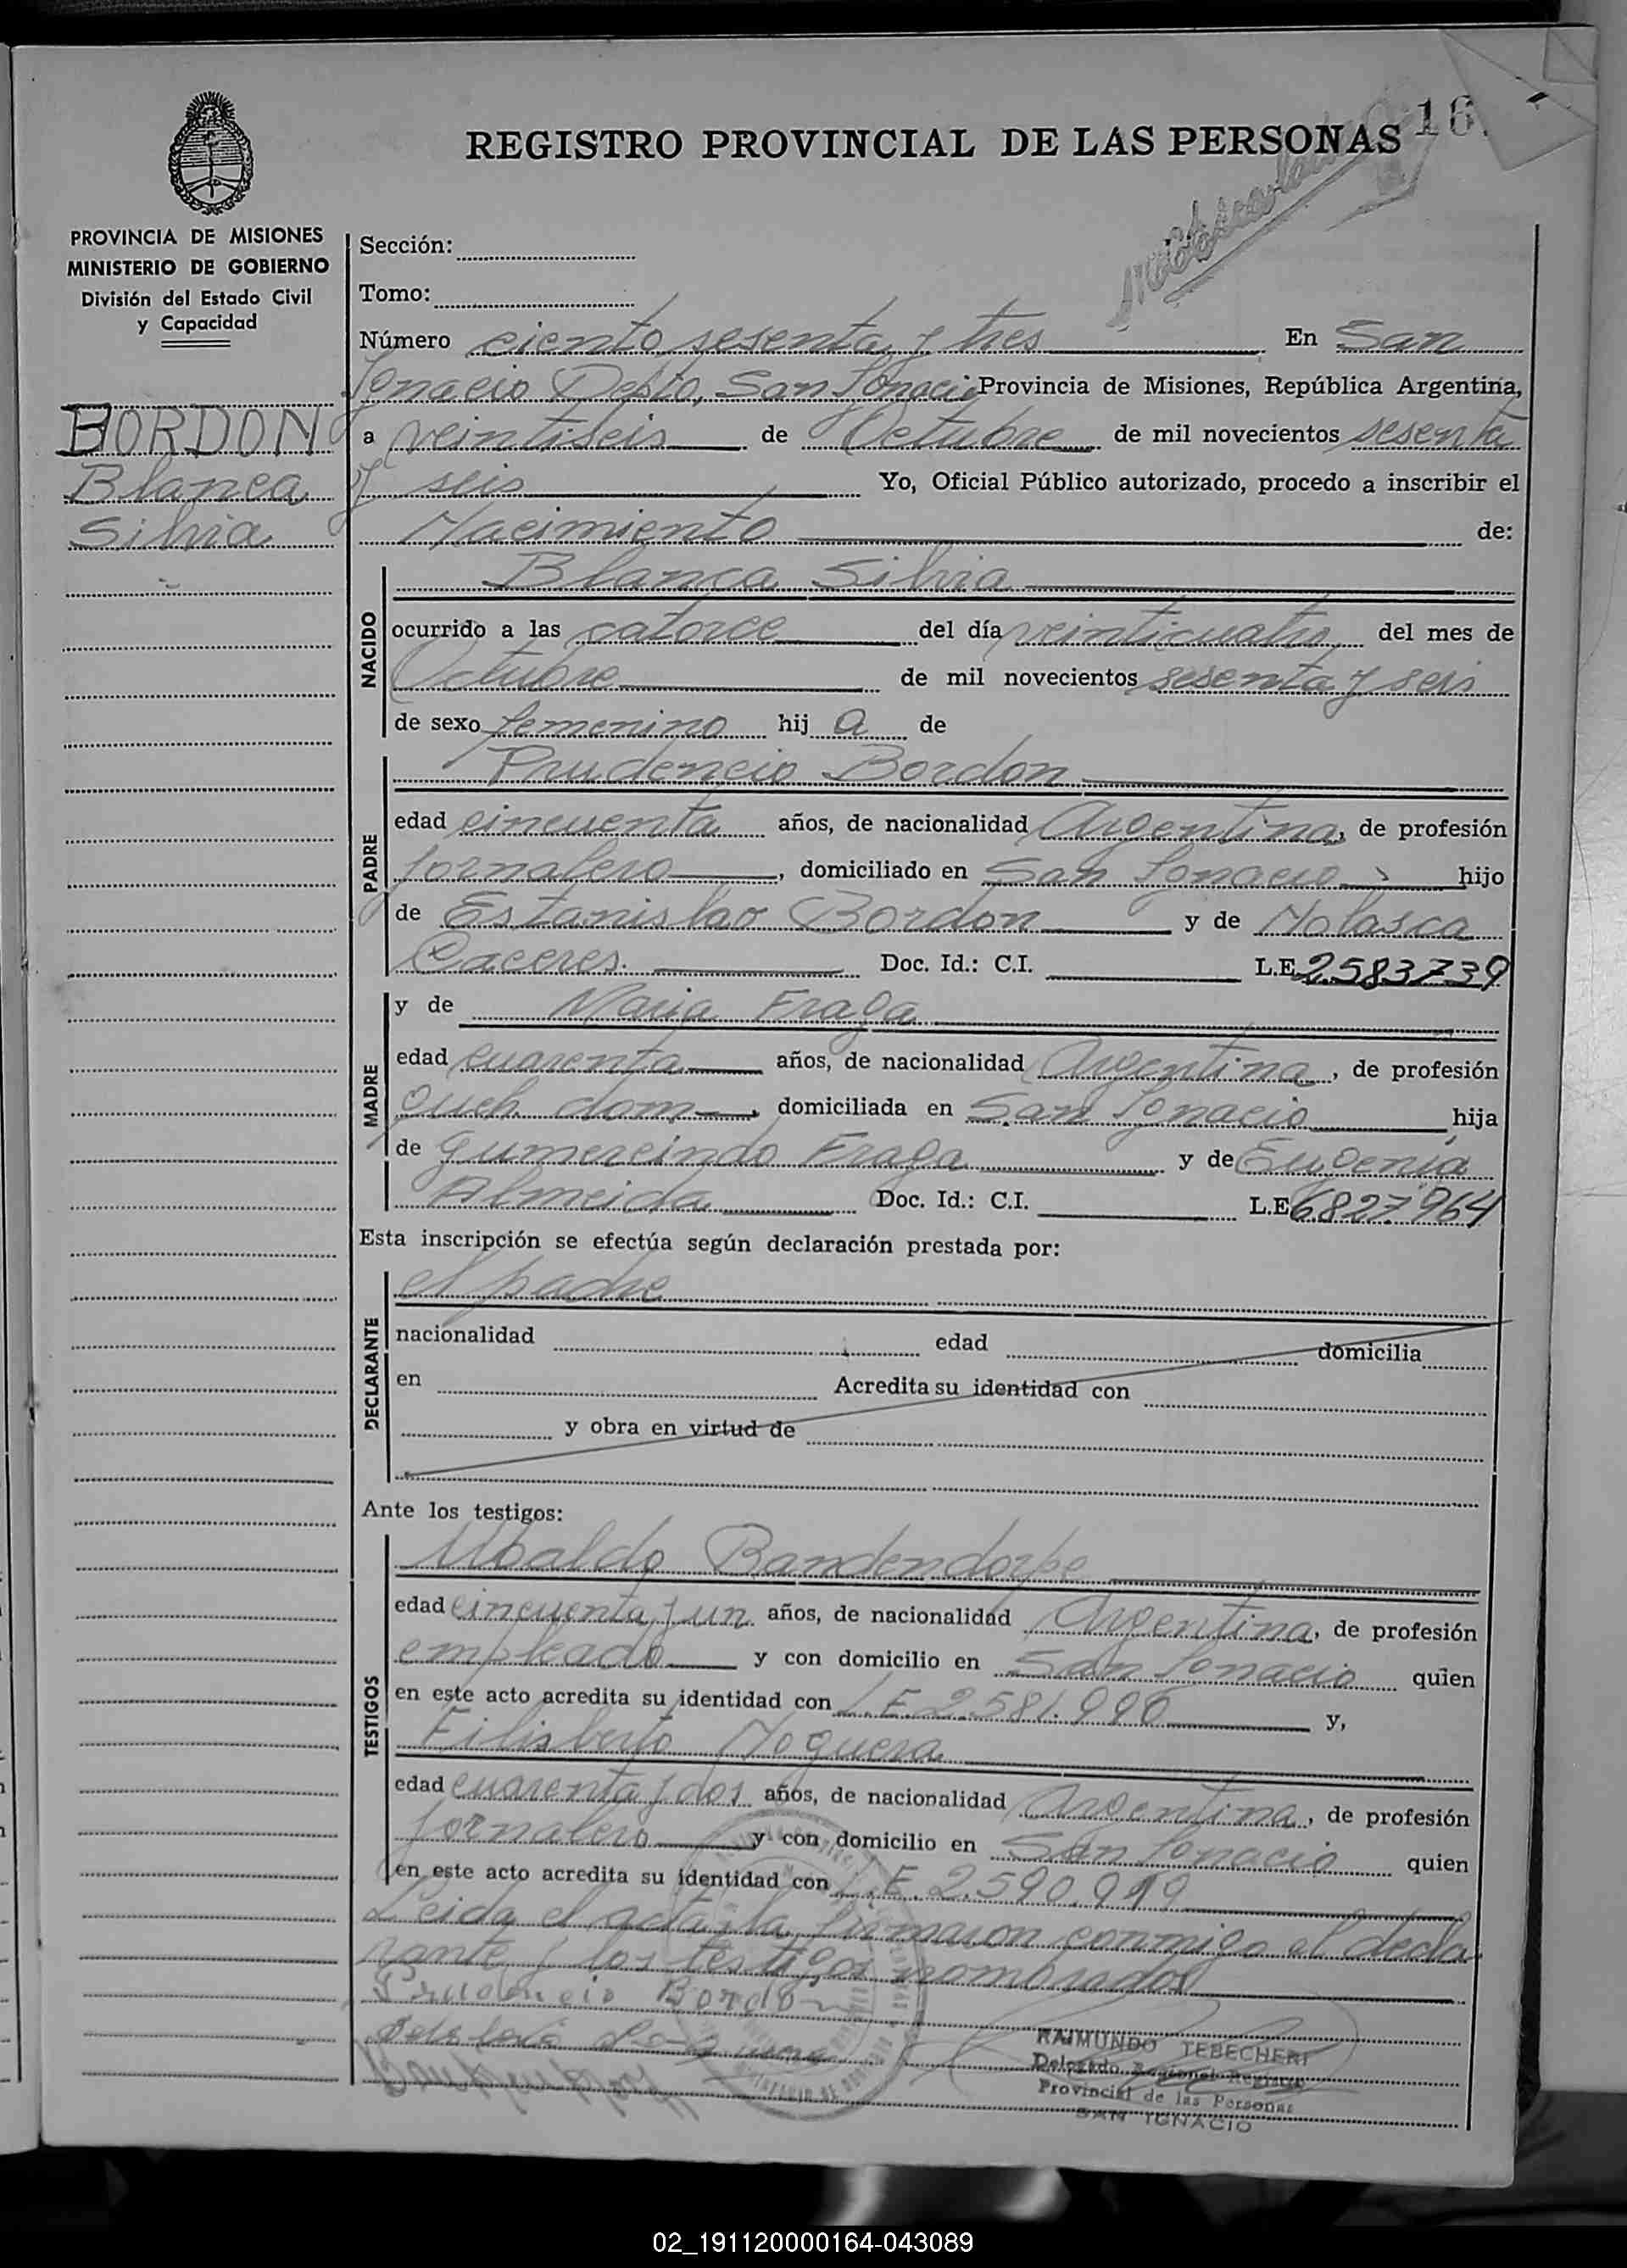 REGISTRO PROVINCIAL DE LAS PERSONAS 16
PROVINCIA DE MISIONES
MINISTERIO DE GOBIERNO
División del Estado Civil
y Capacidad
BORDON
Blanca
Silvia
Sección:
Tomo:
Número ciento sesenta y tres En San
Ignacio Depto, San Ignacio Provincia de Misiones, República Argentina,
a veintiseis de Octubre de mil novecientos sesenta
y seis Yo, Oficial Público autorizado, procedo a inscribir el
Nacimiento de:
NACIDO
Blanca Silvia
ocurrido a las catorce del día veinticuatro del mes de
Octubre de mil novecientos sesenta y seis
de sexo femenino hij a de
PADRE
Prudencio Bordon
edad cincuenta años, de nacionalidad Argentina, de profesión
Jornalero, domiciliado en San Ignacio, hijo
de Estanislao Bordon y de Nolasca
Caceres. Doc. Id.: C.I. L.E 2.583739
MADRE
y de Maria Fraga
edad cuarenta años, de nacionalidad Argentina, de profesión
Queh. dom, domiciliada en San Ignacio hija
de Gumercindo Fraga y de Eugenia
Almeida Doc. Id.: C.I. L.E 6827964
Esta inscripción se efectúa según declaración prestada por:
DECLARANTE
el padre
nacionalidad edad domicilia
en Acredita su identidad con
y obra en virtud de
Ante los testigos:
TESTIGOS
Ubaldo Bandendorpe
edad cincuenta y un años, de nacionalidad Argentina, de profesión
empleado y con domicilio en San Ignacio quien
en este acto acredita su identidad con L.E. 2.581.996 y,
Filisberto Noguera
edad cuarenta y dos años, de nacionalidad Argentina, de profesión
Jornalero y con domicilio en San Ignacio quien
en este acto acredita su identidad con L.E. 2.590.919
Leida el acta, la firmaron conmigo el decla
rante y los testigos nombrados
Prudencio Bordon
RAIMUNDO TEBECHERI
Delegado Regional Registro
Provincial de las Personas
SAN IGNACIO
02_191120000164-043089